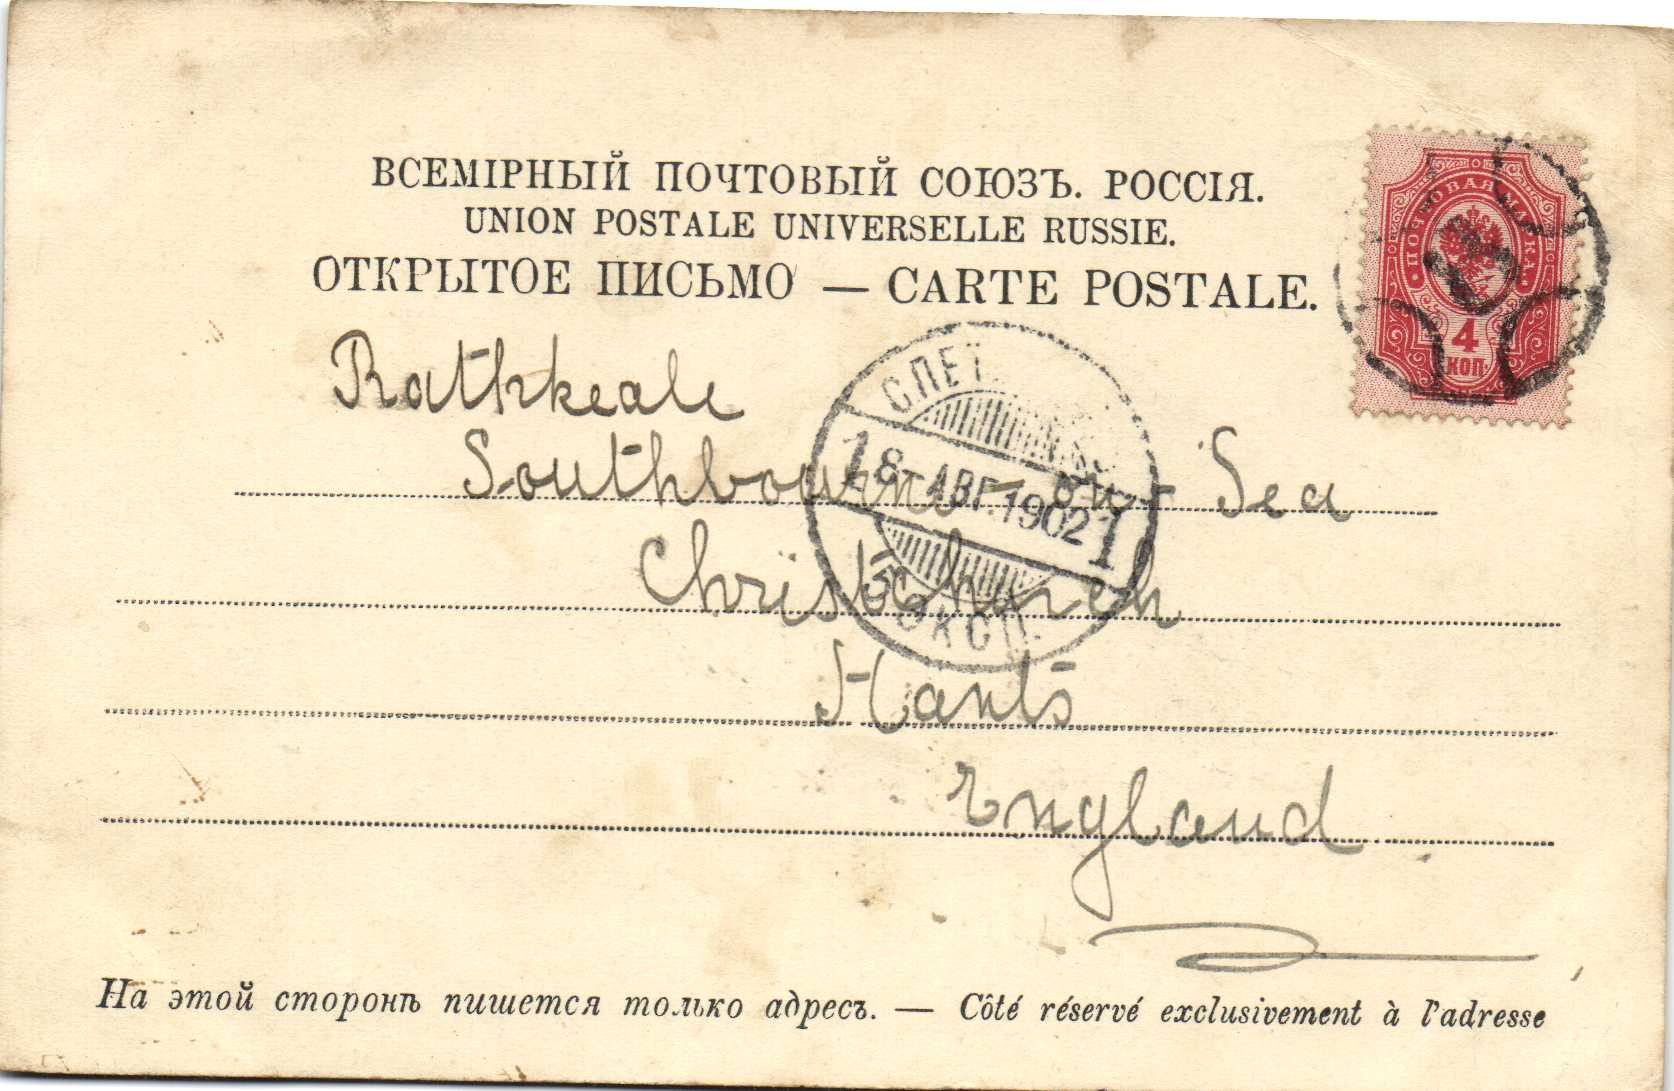 ВСЕМІРНЫЙ ПОЧТОВЫЙ СОЮЗЪ. РОССІЯ.
UNION POSTALE UNIVERSELLE RUSSIE.
ОТКРЫТОЕ ПИСЬМО — CARTE POSTALE.
ПОЧТОВАЯ МАРКА
4
КОП.
Rathkeale
Southbourne - on - Sea
Christchurch
Hants
England
1 8 АВГ. 1902 1
ЭКСП.
На этой сторонѣ пишется только адресъ. — Côté réservé exclusivement à l'adresse